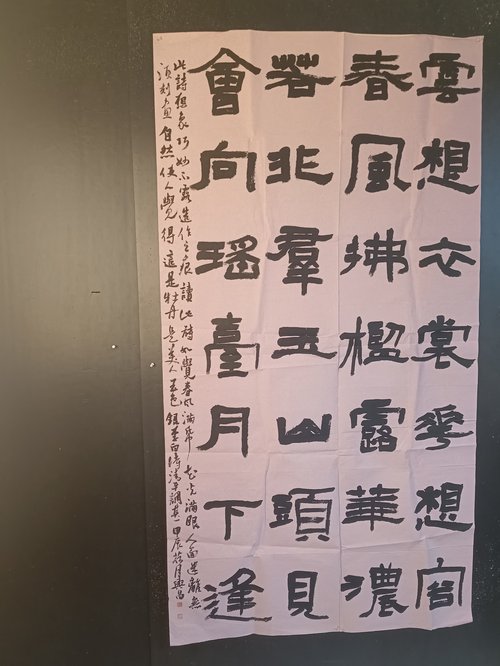 雲想衣裳花想容
春風拂檻露華濃
若非羣玉山頭見
會向瑤臺月下逢
此詩想象巧妙不露造作之痕讀此詩如覺春風滿紙花光滿眼人面迷離無
須刻畫自然使人覺得這是牡丹是美人玉色 錄李白詩清平調其一甲辰月興昌